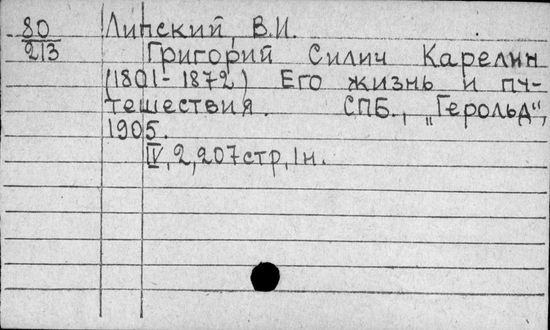 80 Липский, В.И.
213 Григорий Силич Карелин
(1801-1872) Его жизнь и пу-
тешествия. СПБ., „Герольд“,
1905.
IV, 2, 207 стр, 1н.